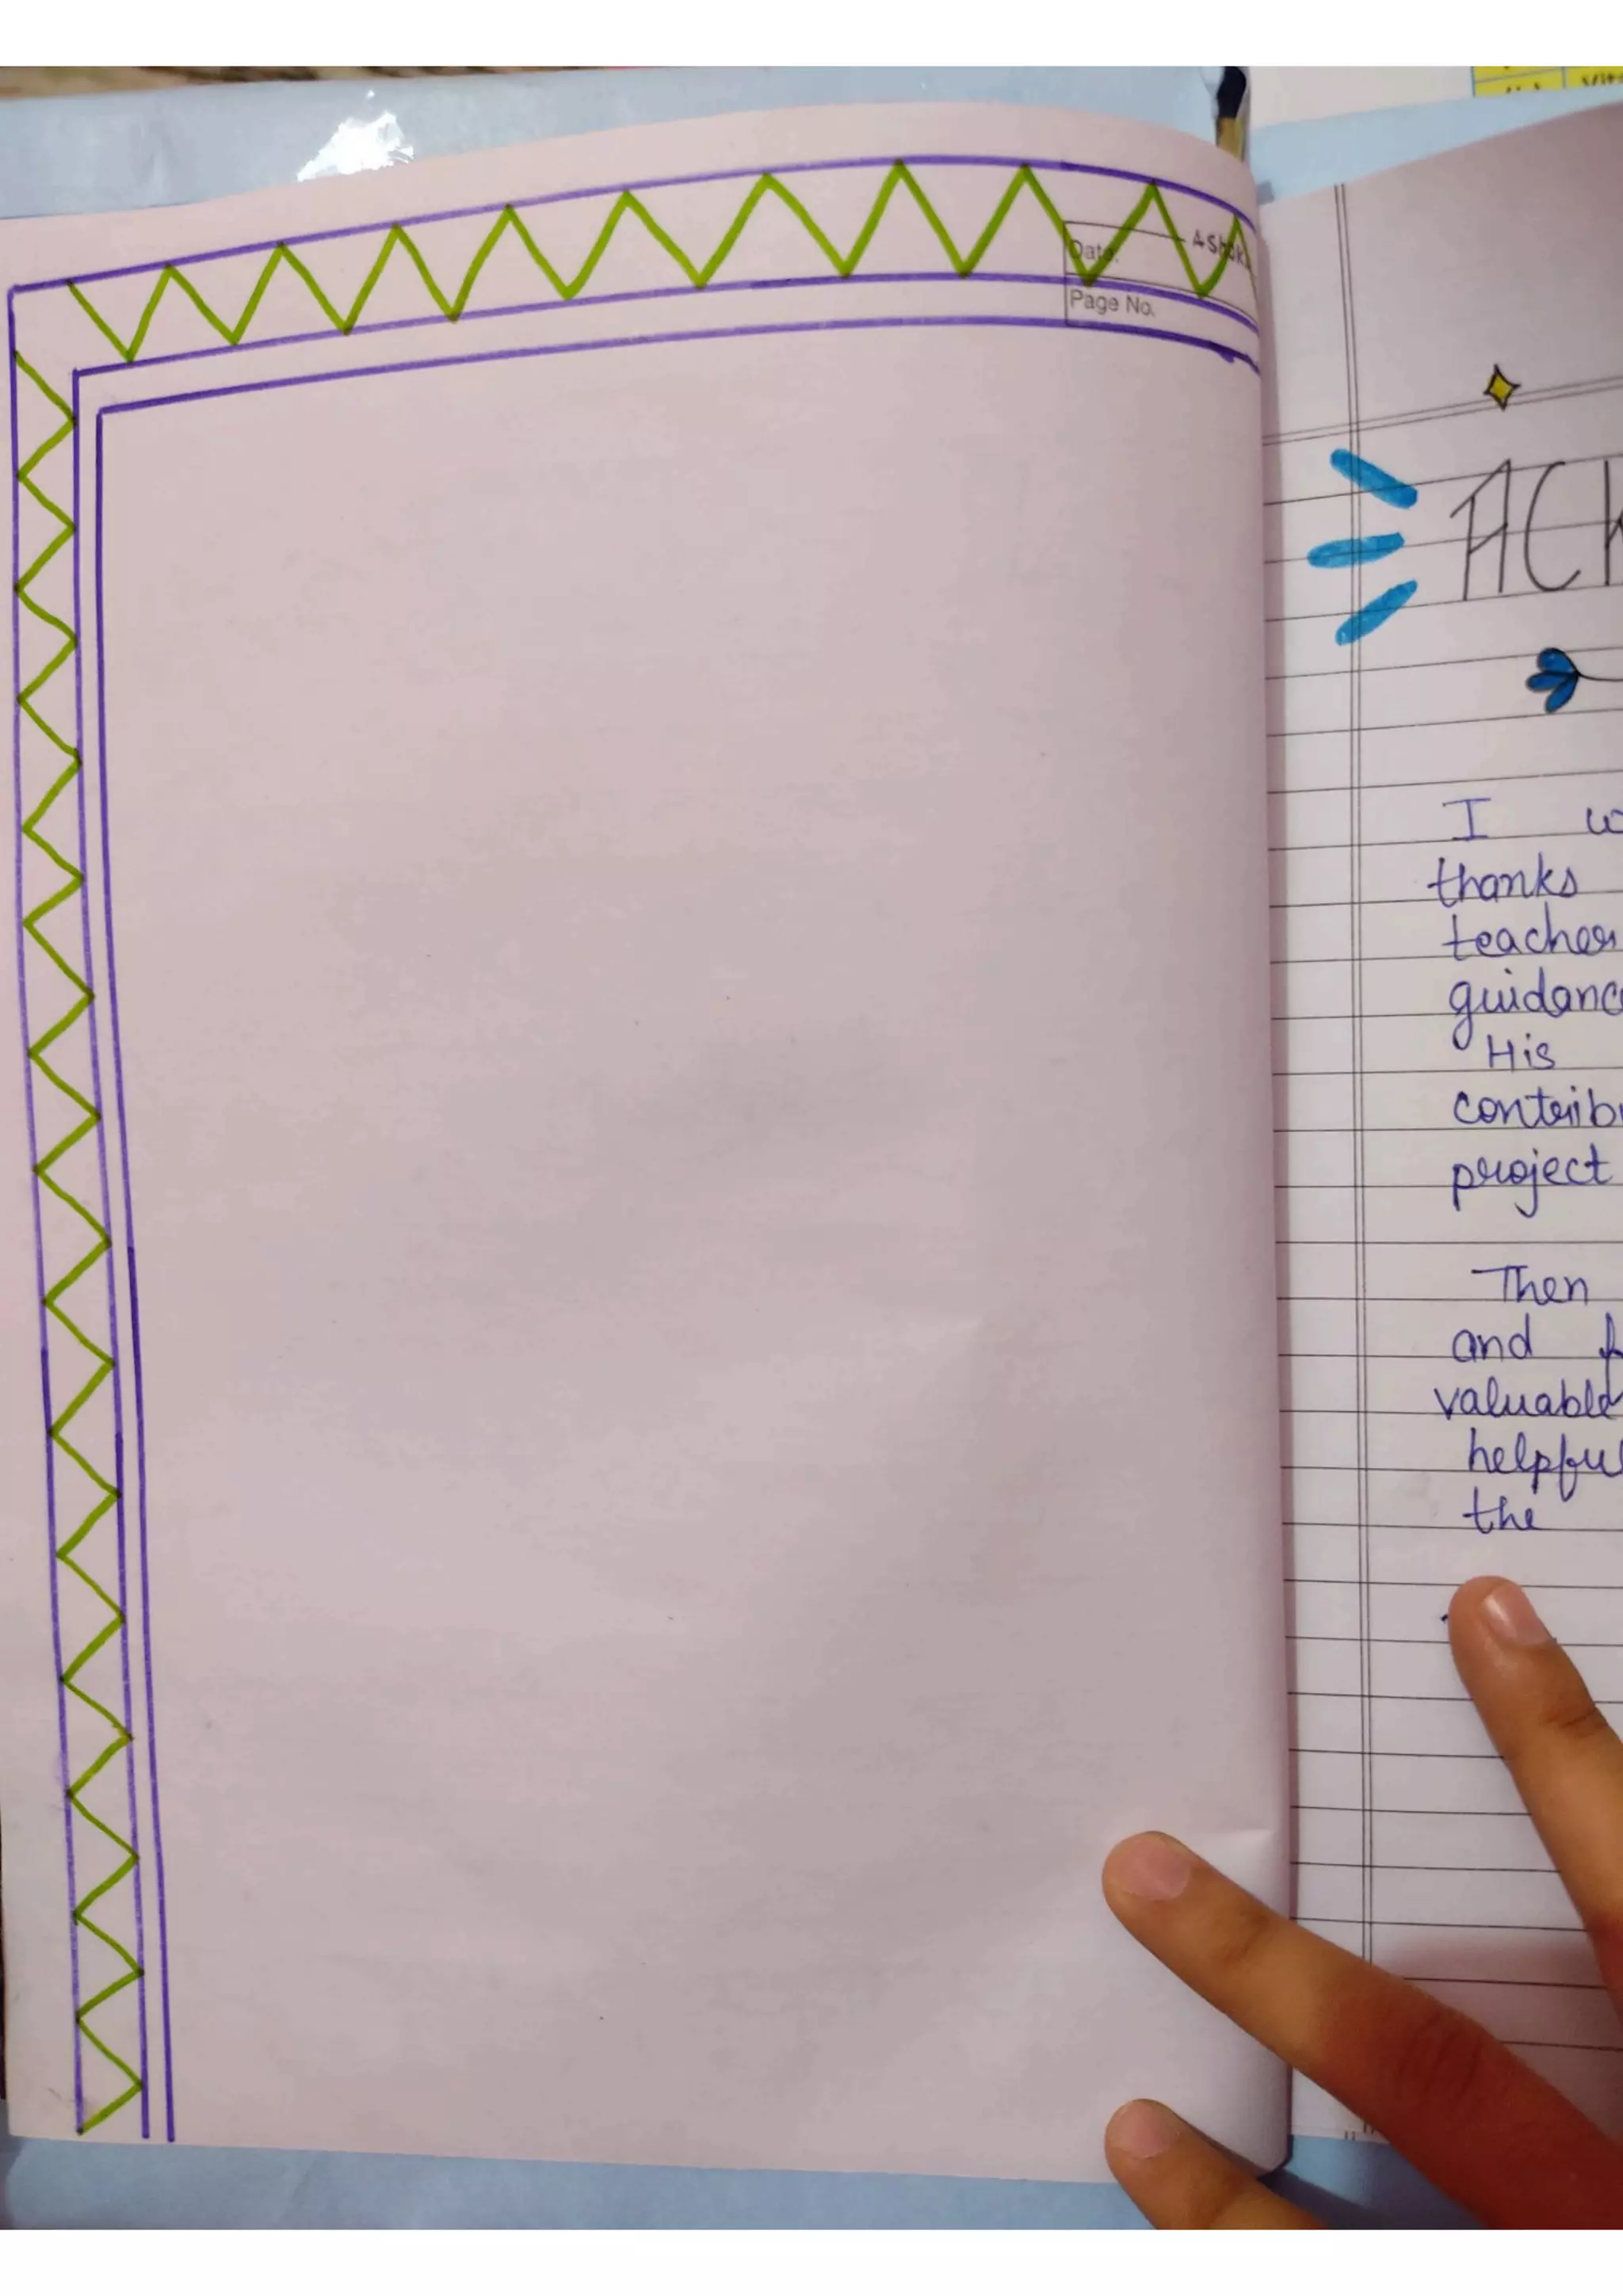 Ashok
Date:
Page No.
ACK
I
thanks
teacher
guidanc
His
contribu
project
Then
and
valuable
helpful
the